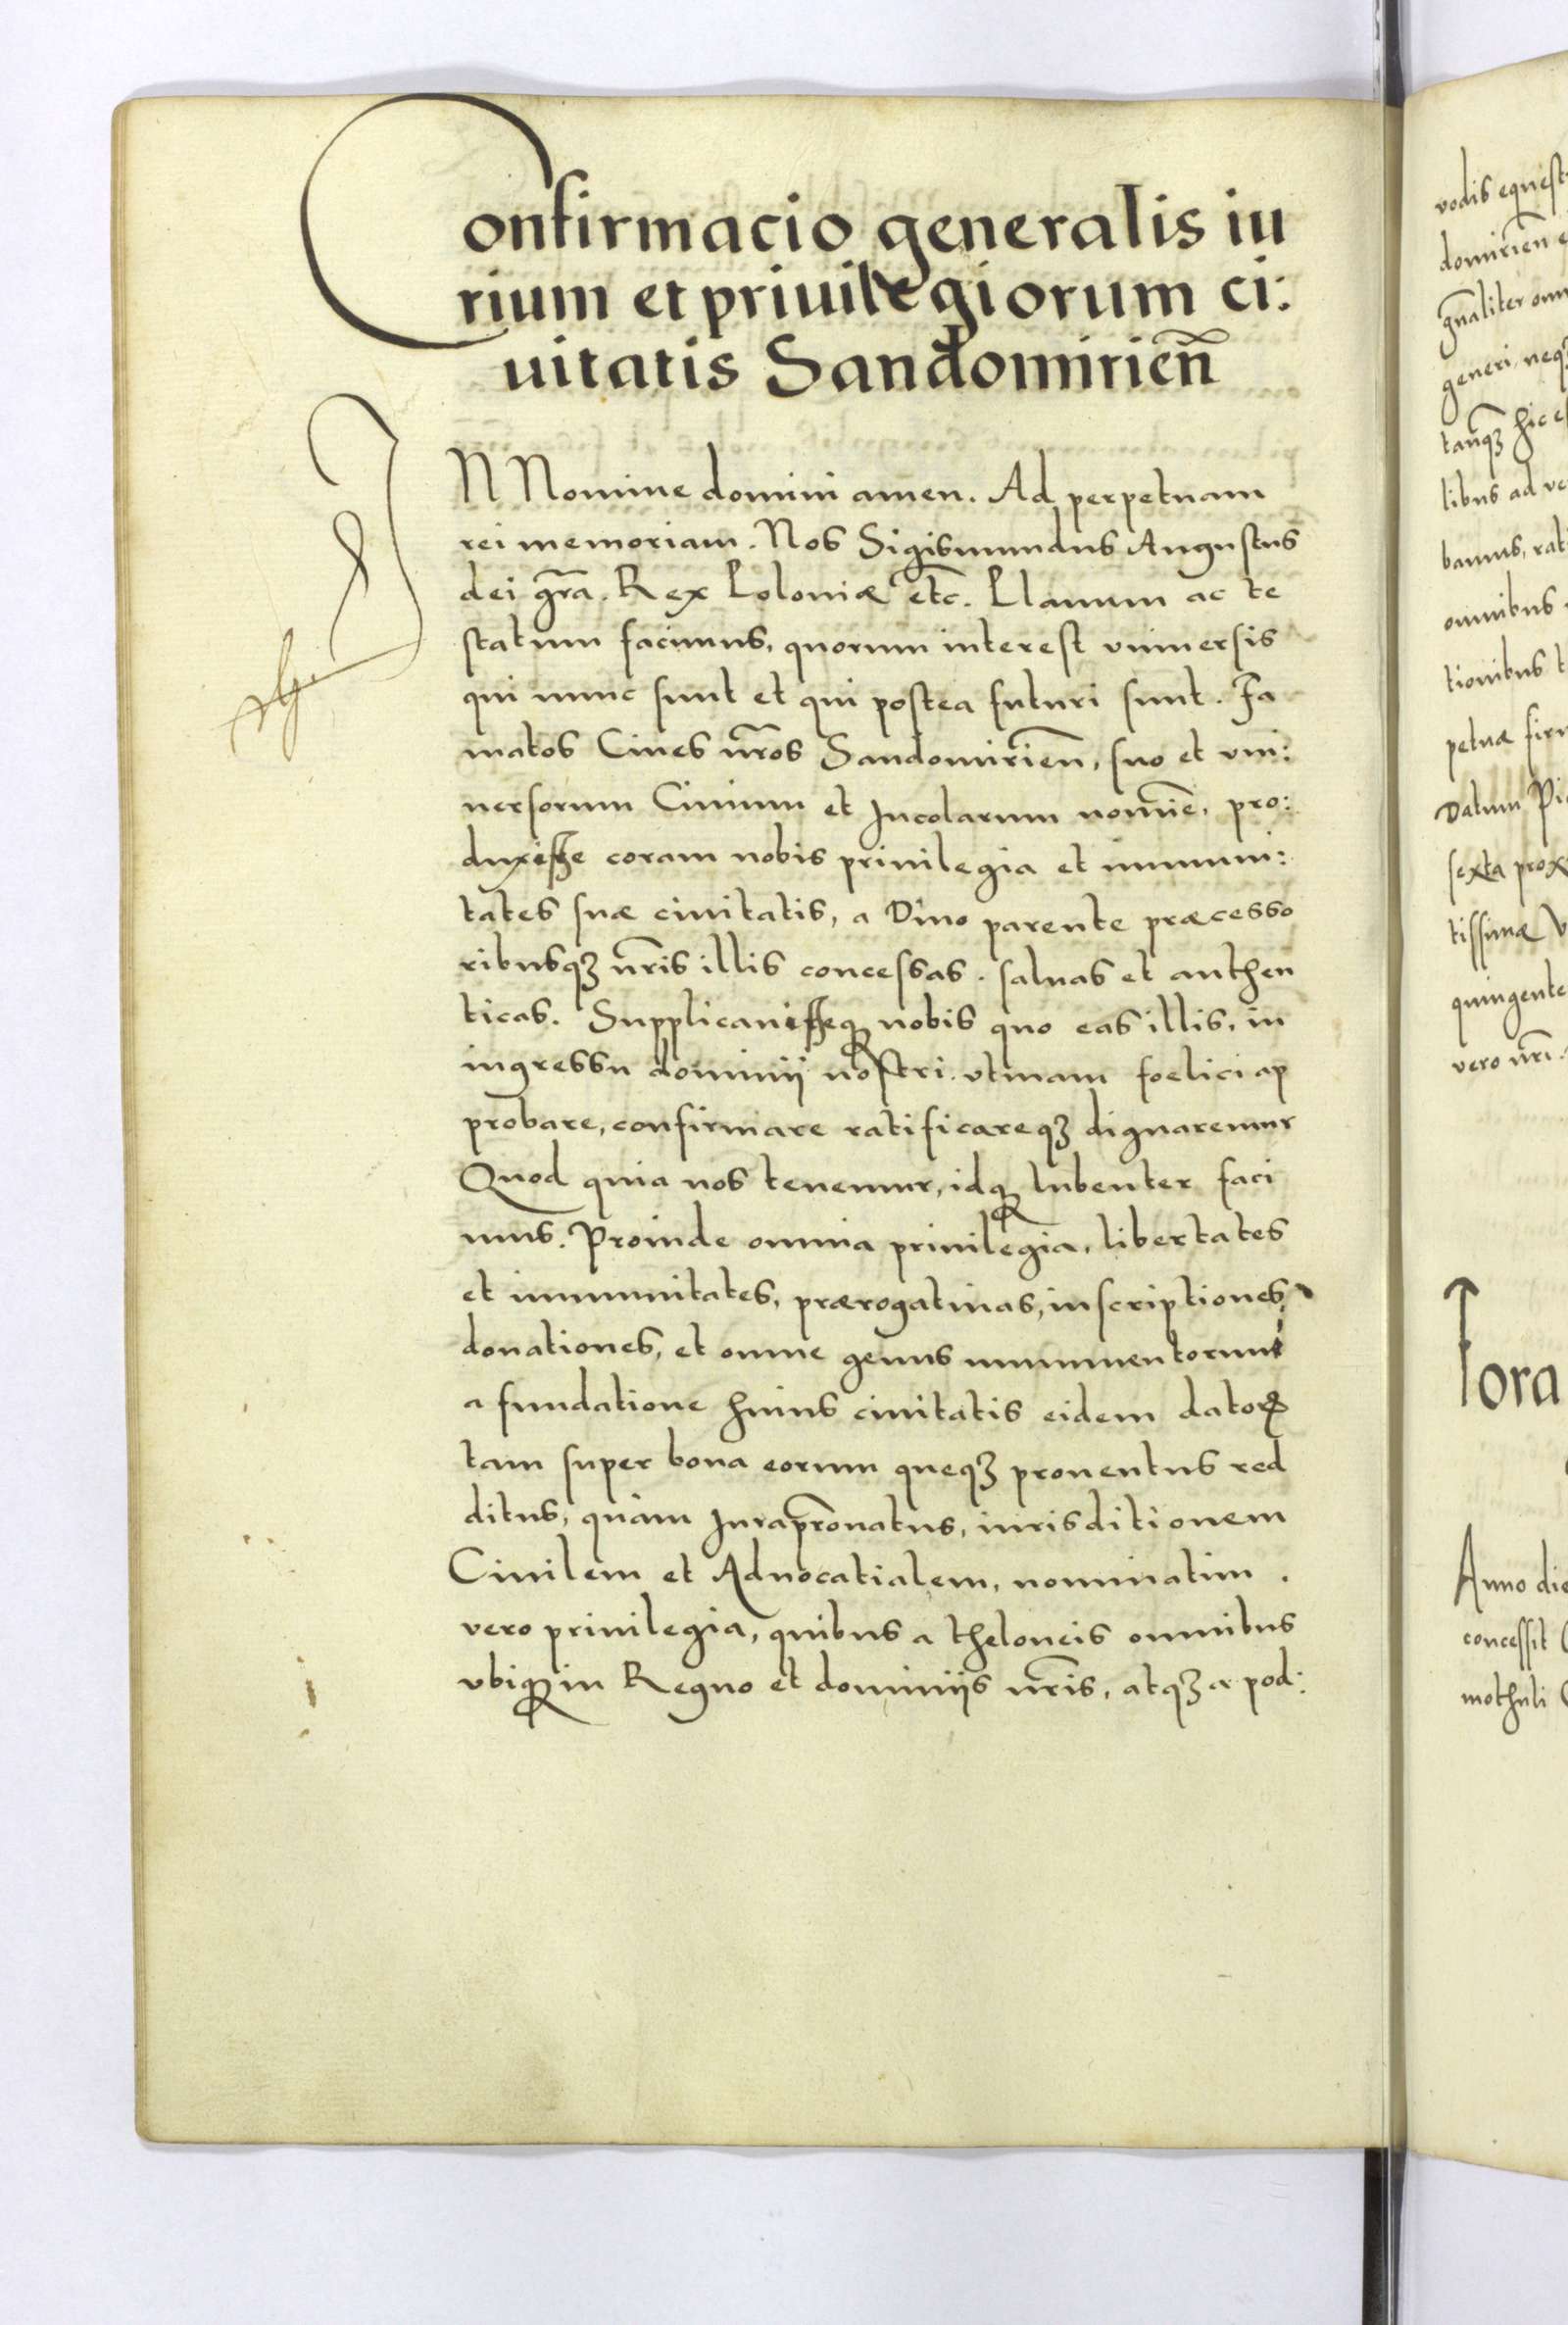 Confirmacio generalis iu
rium et priuilegiorum ci:
uitatis Sandomirien̄
IN Nomine domini amen. Ad perpetuam
rei memoriam. Nos Sigismundus Augustus
dei gr̄a. Rex Poloniæ etc̄. Planum ac te
statum facimus, quorum interest vniuersis
qui nunc sunt et qui postea futuri sunt. Fa
matos Ciues nr̄os Sandomirien̄, suo et vni:
uersorum Ciuium et Incolarum nomīe, pro:
duxisse coram nobis priuilegia et immuni:
tates suæ ciuitatis, a Diuo parente præcesso
ribusqꝫ nr̄is illis concessas. saluas et authen
ticas. Supplicauisseqꝫ nobis quo eas illis, in
ingressu dominij nostri. vtinam foelici ap
probare, confirmare ratificareqꝫ dignaremur
Quod quia nos tenemur, idqꝫ lubenter faci
mus. Proinde omnia priuilegia, libertates
et immunitates, prærogatiuas, inscriptiones,
donationes, et omne genus munimentorum
a fundatione huius ciuitatis eidem datorꝝ
tam super bona eorum queqꝫ prouentus red
ditus, quàm Iurapr̄onatus, iurisditionem
Ciuilem et Aduocatialem, nominatim.
vero priuilegia, quibus a theloneis omnibus
vbiqꝫ in Regno et dominijs nr̄is, atqꝫ a pod:
vodis equest
domirien̄ e
gn̄aliter om
generi, neqꝫ
tanqꝫ hic e
libus ad ve
bamus, rat
omnibus
tionibus t
petuæ firm
Datum Pi
sexta prox
tissimæ V
quingente
vero nr̄i.
fora
Anno die
concessit
mothuli